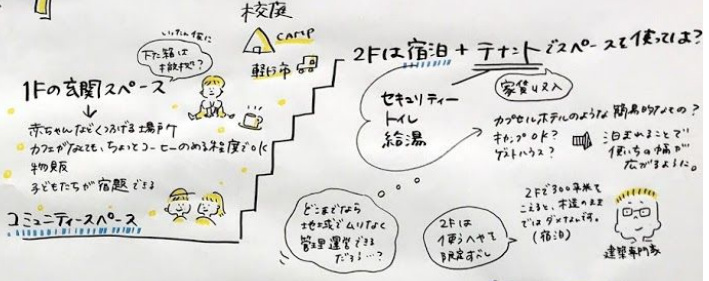 校庭
CAMP
軽トラ市
いったん仮に
下た箱は
撤校?
1Fの玄関スペース
赤ちゃんなどくつろげる場所
カフェがなくても、ちょっとコーヒーのめる程度でOK
物販
子どもたちが宿題できる
コミュニティースペース
2Fは宿泊+テナントでスペースを使っては?
家賃収入
セキュリティー
トイレ
給湯
カプセルホテルのような簡易的なもの?
キャンプOK?
ゲストハウス?
泊まれることで
使いみちの幅が
広がるように。
どこまでなら
地域でムリなく
管理運営できる
だろう…?
2Fは
使うへやを
限定すべし
2Fで300平米を
こえると、木造のまま
ではダメなんです。
(宿泊)
建築専門家